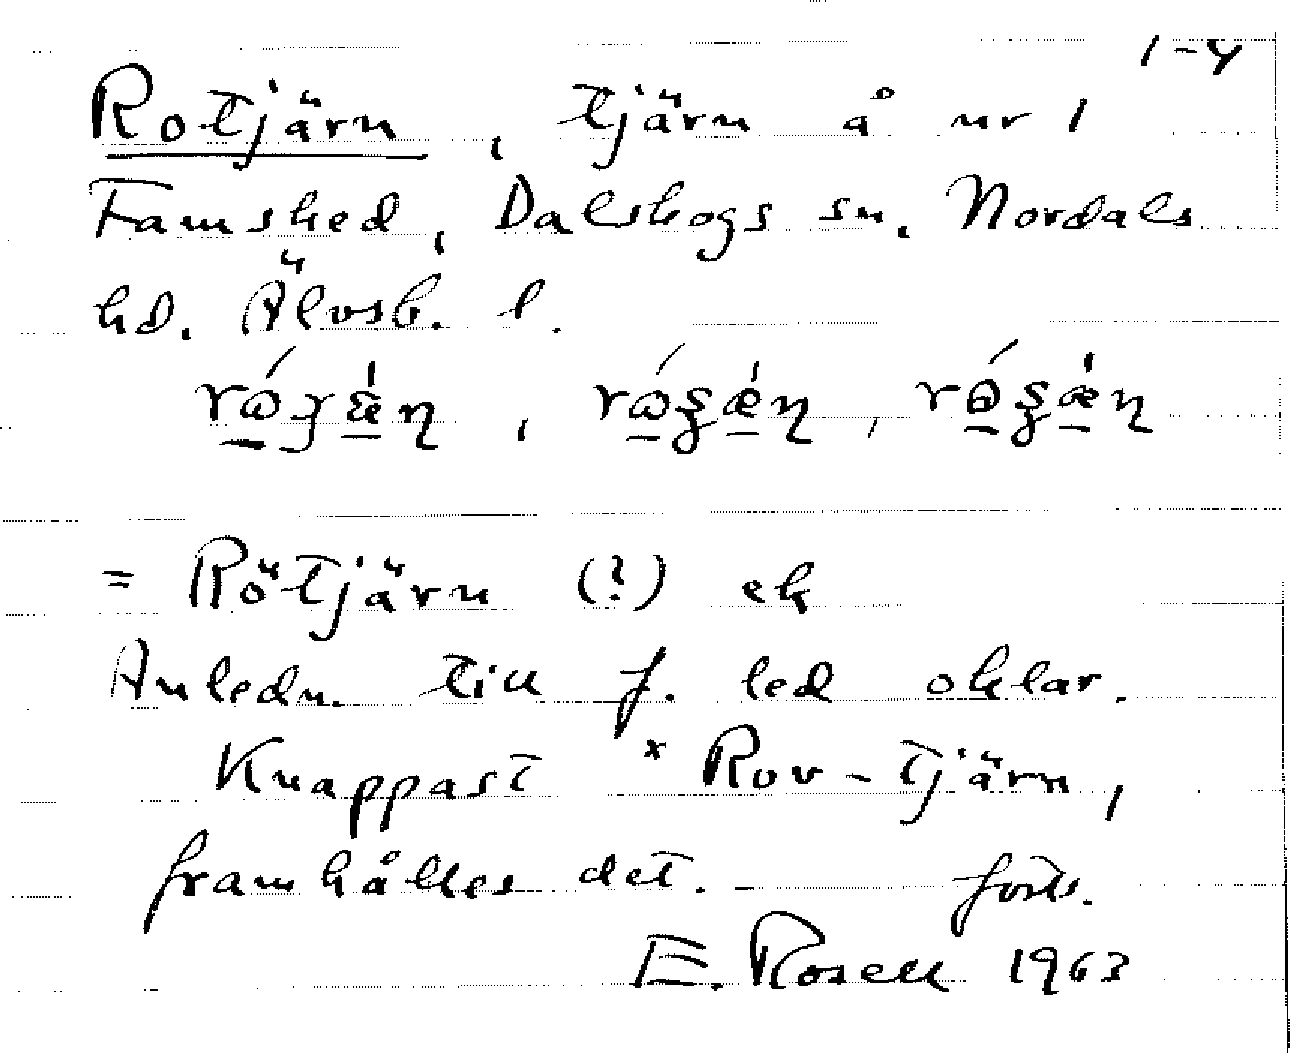 1-4
Rotjärn, tjärn å nr 1
Famshed, Dalskogs sn. Nordals
hd. Älvsb. l.
= Rötjärn (?) ek
Anledn. till f. led oklar.
Knappast *Rov-tjärn,
framhålles det. – forts.
E. Rosell 1963